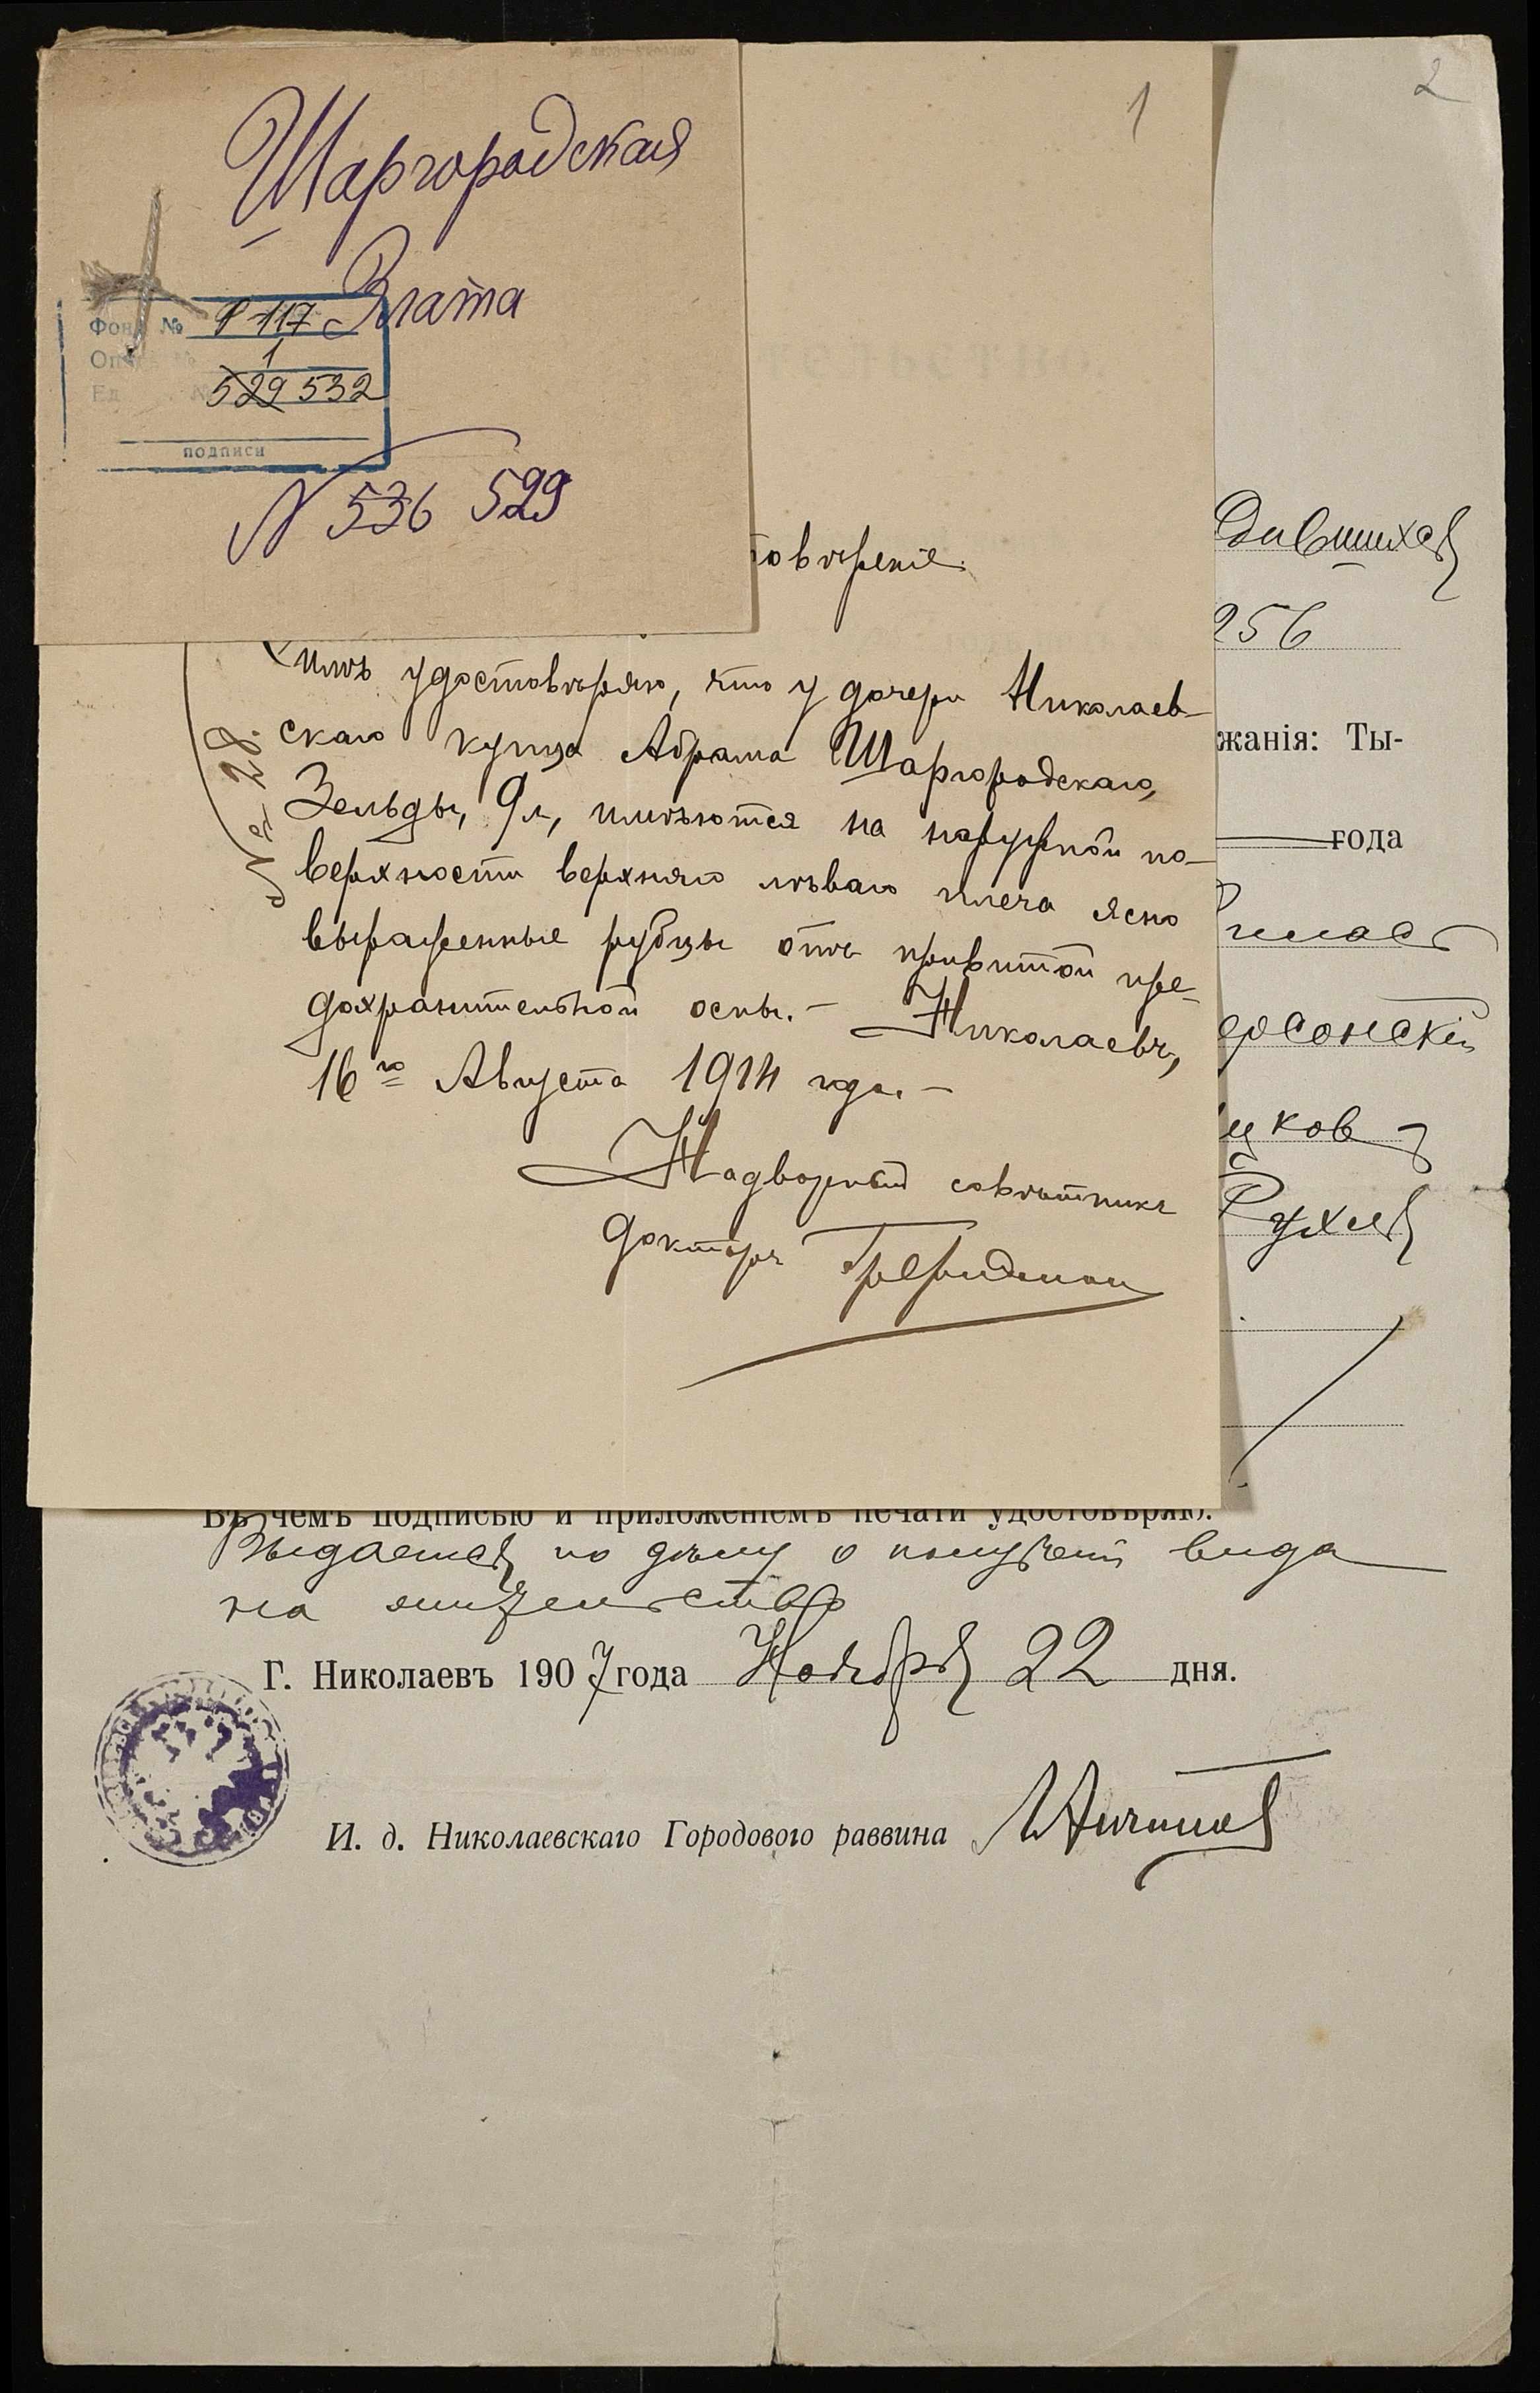 Шаргородская
Злата
Фонд № Р 117
1
529 532
подписи
N 536 529
1
2
товѣреніе.
№ 28.
симъ удостовѣряю, что у дочери Николаев-
скаго купца Абрама Шаргородскаго,
Зельды, 9 л, имѣются на наружной по-
верхности верхняго лѣваго плеча ясно
выраженные рубцы отъ привитой пре-
дохранительной оспы. – Николаевъ,
16го Августа 1914 года. –
Надворный совѣтникъ
докторъ
дившихся
256
жанія: Ты-
года
ерсонскій
цков
Рухля
Въ чемъ подписью и приложеніемъ печати удостовѣряю.
Выдается по дѣлу о полученіи вида
на жительство
Г. Николаевъ 1907 года Ноября 22 дня.
И. д. Николаевскаго Городового раввина